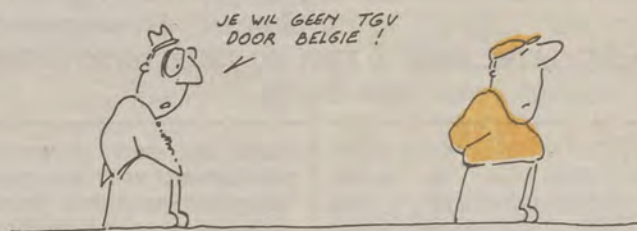 JE WIL GEEN TGV
DOOR BELGIE !